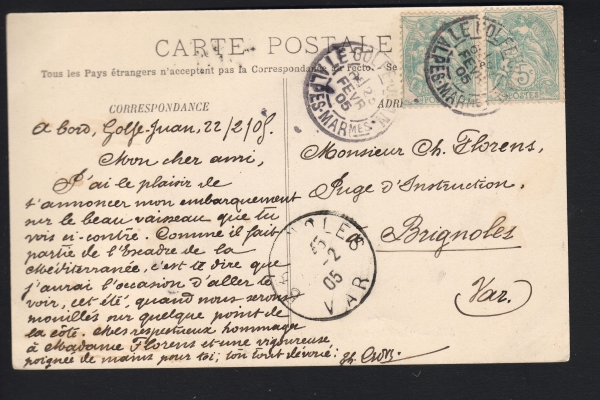 CARTE POSTALE
Tous les Pays étrangers n'acceptent pas la Correspondance au recto. Se
CORRESPONDANCE
A bord, Golfe-Juan, 22/2/05.
Mon cher ami,
J'ai le plaisir de
t'annoncer mon embarquement
sur le beau vaisseau que tu
vois ci-contre. Comme il fait
partie de l'Escadre de la
Méditerranée, c'est te dire que
j'aurai l'occasion d'aller te
voir, cet été, quand nous serons
mouillés sur quelque point de
la côte. Mes respectueux hommages
à Madame Florens et une vigoureuse
poignée de mains pour toi; ton tout dévoué:
ADR
Monsieur Ch. Florens,
Juge d'Instruction,
Brignoles
Var.
VALLE
FEVR
05
ALPES-MARMES
FEVR
05
ALPES-MAR
5
POSTES
BRIGNOLES
2
05
VAR